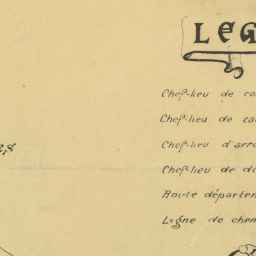 LEG
Chef-lieu de ca
Chef-lieu de ca
Chef-lieu d'arro
Chef-lieu de dé
Route départem
Ligne de chem